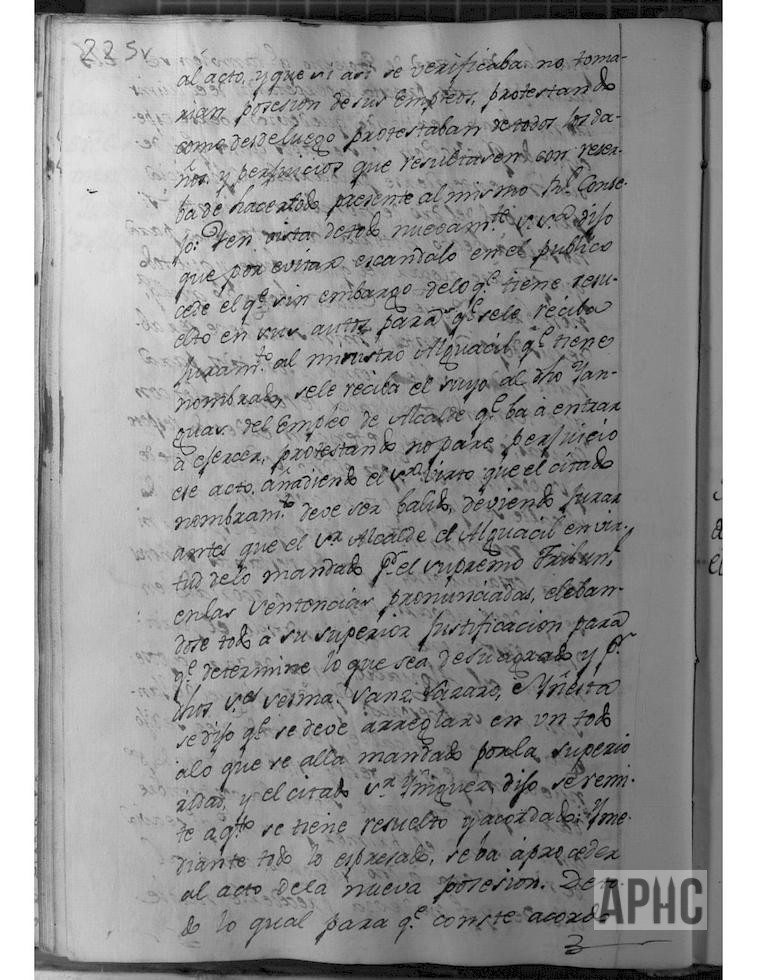 225v
al acto, y que si asi se verificaba no toma-
rian posesion de sus Empleos, protestando
como desde luego protestaban de todos los da-
ños, y perjuicios que resultasen con reser-
ba de hacerlo todo presente al mismo Rl. Conse-
jo: Y en vista de todo nuevamte. s. sria. dijo
que por evitar escandalo en el publico
cede el qe. sin embargo de lo qe. tiene resu-
elto en sus autos para qe. se le reciba
juramto. al ministro Alguacil qe. tiene
nombrado, se le reciba el suyo al dho Yan-
guas del Empleo de Alcalde qe. ba à entrar
à ejercer, protestando no pare perjuicio
ese acto, añadiendo el sr. Virto que el citado
nombramto. deve ser balido, deviendo jurar
antes que el sr. Alcalde el Alguacil en vir-
tud de lo mandado pr. el supremo Tribunl.
en las sentencias pronunciadas, eleban-
dose todo à su superior justificacion para
qe. determine lo que sea de su agrado y pr.
dhos sres. Lazaro, è Yñesta
se dijo qe. se deve arreglar en un todo
alo que se alla mandado por la superio
ridad, y el citado sr. Yñiguez dijo se remi-
te a qto. se tiene resuelto y acordado: Y me-
diante todo lo espresado, se ba à proceder
al acto de la nueva posesion. De to-
do lo qual para qe. conste acordo
APHC